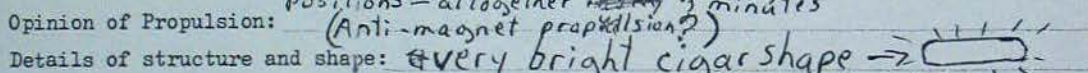 positions — altogether 3 minutes
Opinion of Propulsion: (Anti-magnet propulsion?)
Details of structure and shape: very bright cigar shape →